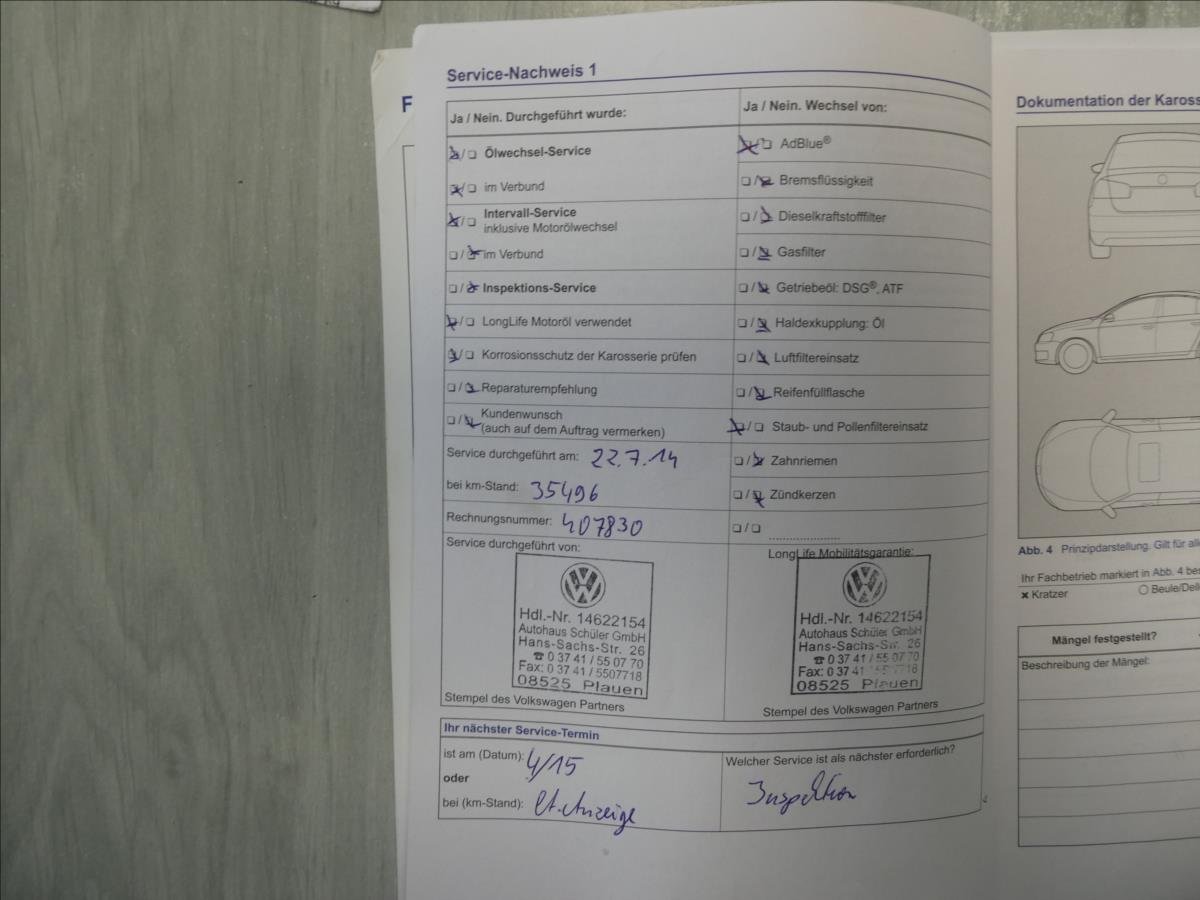 Service-Nachweis 1
Ja / Nein. Durchgeführt wurde:
Ölwechsel-Service
im Verbund
Intervall-Service
inklusive Motorölwechsel
im Verbund
Inspektions-Service
LongLife Motoröl verwendet
Korrosionsschutz der Karosserie prüfen
Reparaturempfehlung
Kundenwunsch
(auch auf dem Auftrag vermerken)
Service durchgeführt am: 22.7.14
bei km-Stand: 35496
Rechnungsnummer: 407830
Service durchgeführt von:
Hdl.-Nr. 14622154
Autohaus Schüler GmbH
Hans-Sachs-Str. 26
☎ 0 37 41 / 55 07 70
Fax: 0 37 41 / 5507718
08525 Plauen
Stempel des Volkswagen Partners
Ja / Nein. Wechsel von:
AdBlue®
Bremsflüssigkeit
Dieselkraftstofffilter
Gasfilter
Getriebeöl: DSG®, ATF
Haldexkupplung: Öl
Luftfiltereinsatz
Reifenfüllflasche
Staub- und Pollenfiltereinsatz
Zahnriemen
Zündkerzen
LongLife Mobilitätsgarantie:
Hdl.-Nr. 14622154
Autohaus Schüler GmbH
Hans-Sachs-Str. 26
☎ 0 37 41 / 55 07 70
Fax: 0 37 41 / 5507718
08525 Plauen
Stempel des Volkswagen Partners
Ihr nächster Service-Termin
ist am (Datum): 4/15
oder
bei (km-Stand): lt. Anzeige
Welcher Service ist als nächster erforderlich?
Inspektion
F
Dokumentation der Kaross
Abb. 4 Prinzipdarstellung. Gilt für all
Ihr Fachbetrieb markiert in Abb. 4 bes
× Kratzer ○ Beule/Dell
Mängel festgestellt?
Beschreibung der Mängel: